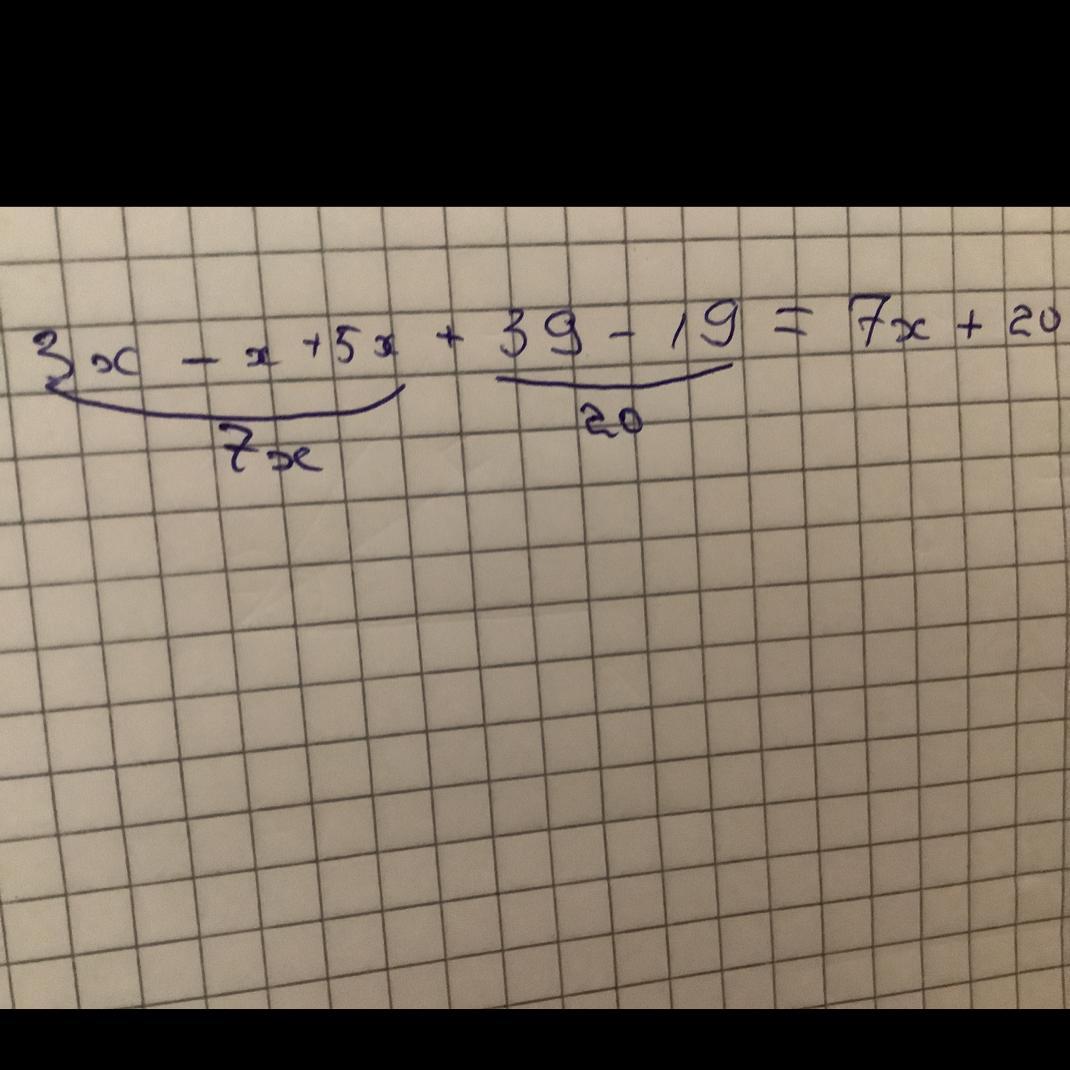 3x - x + 5x + 39 - 19 = 7x + 20
7x 20